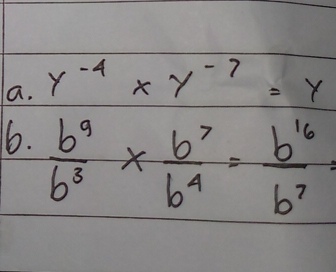 a. y⁻⁴ × y⁻⁷ = y
b. b⁹/b³ × b⁷/b⁴ = b¹⁶/b⁷ =